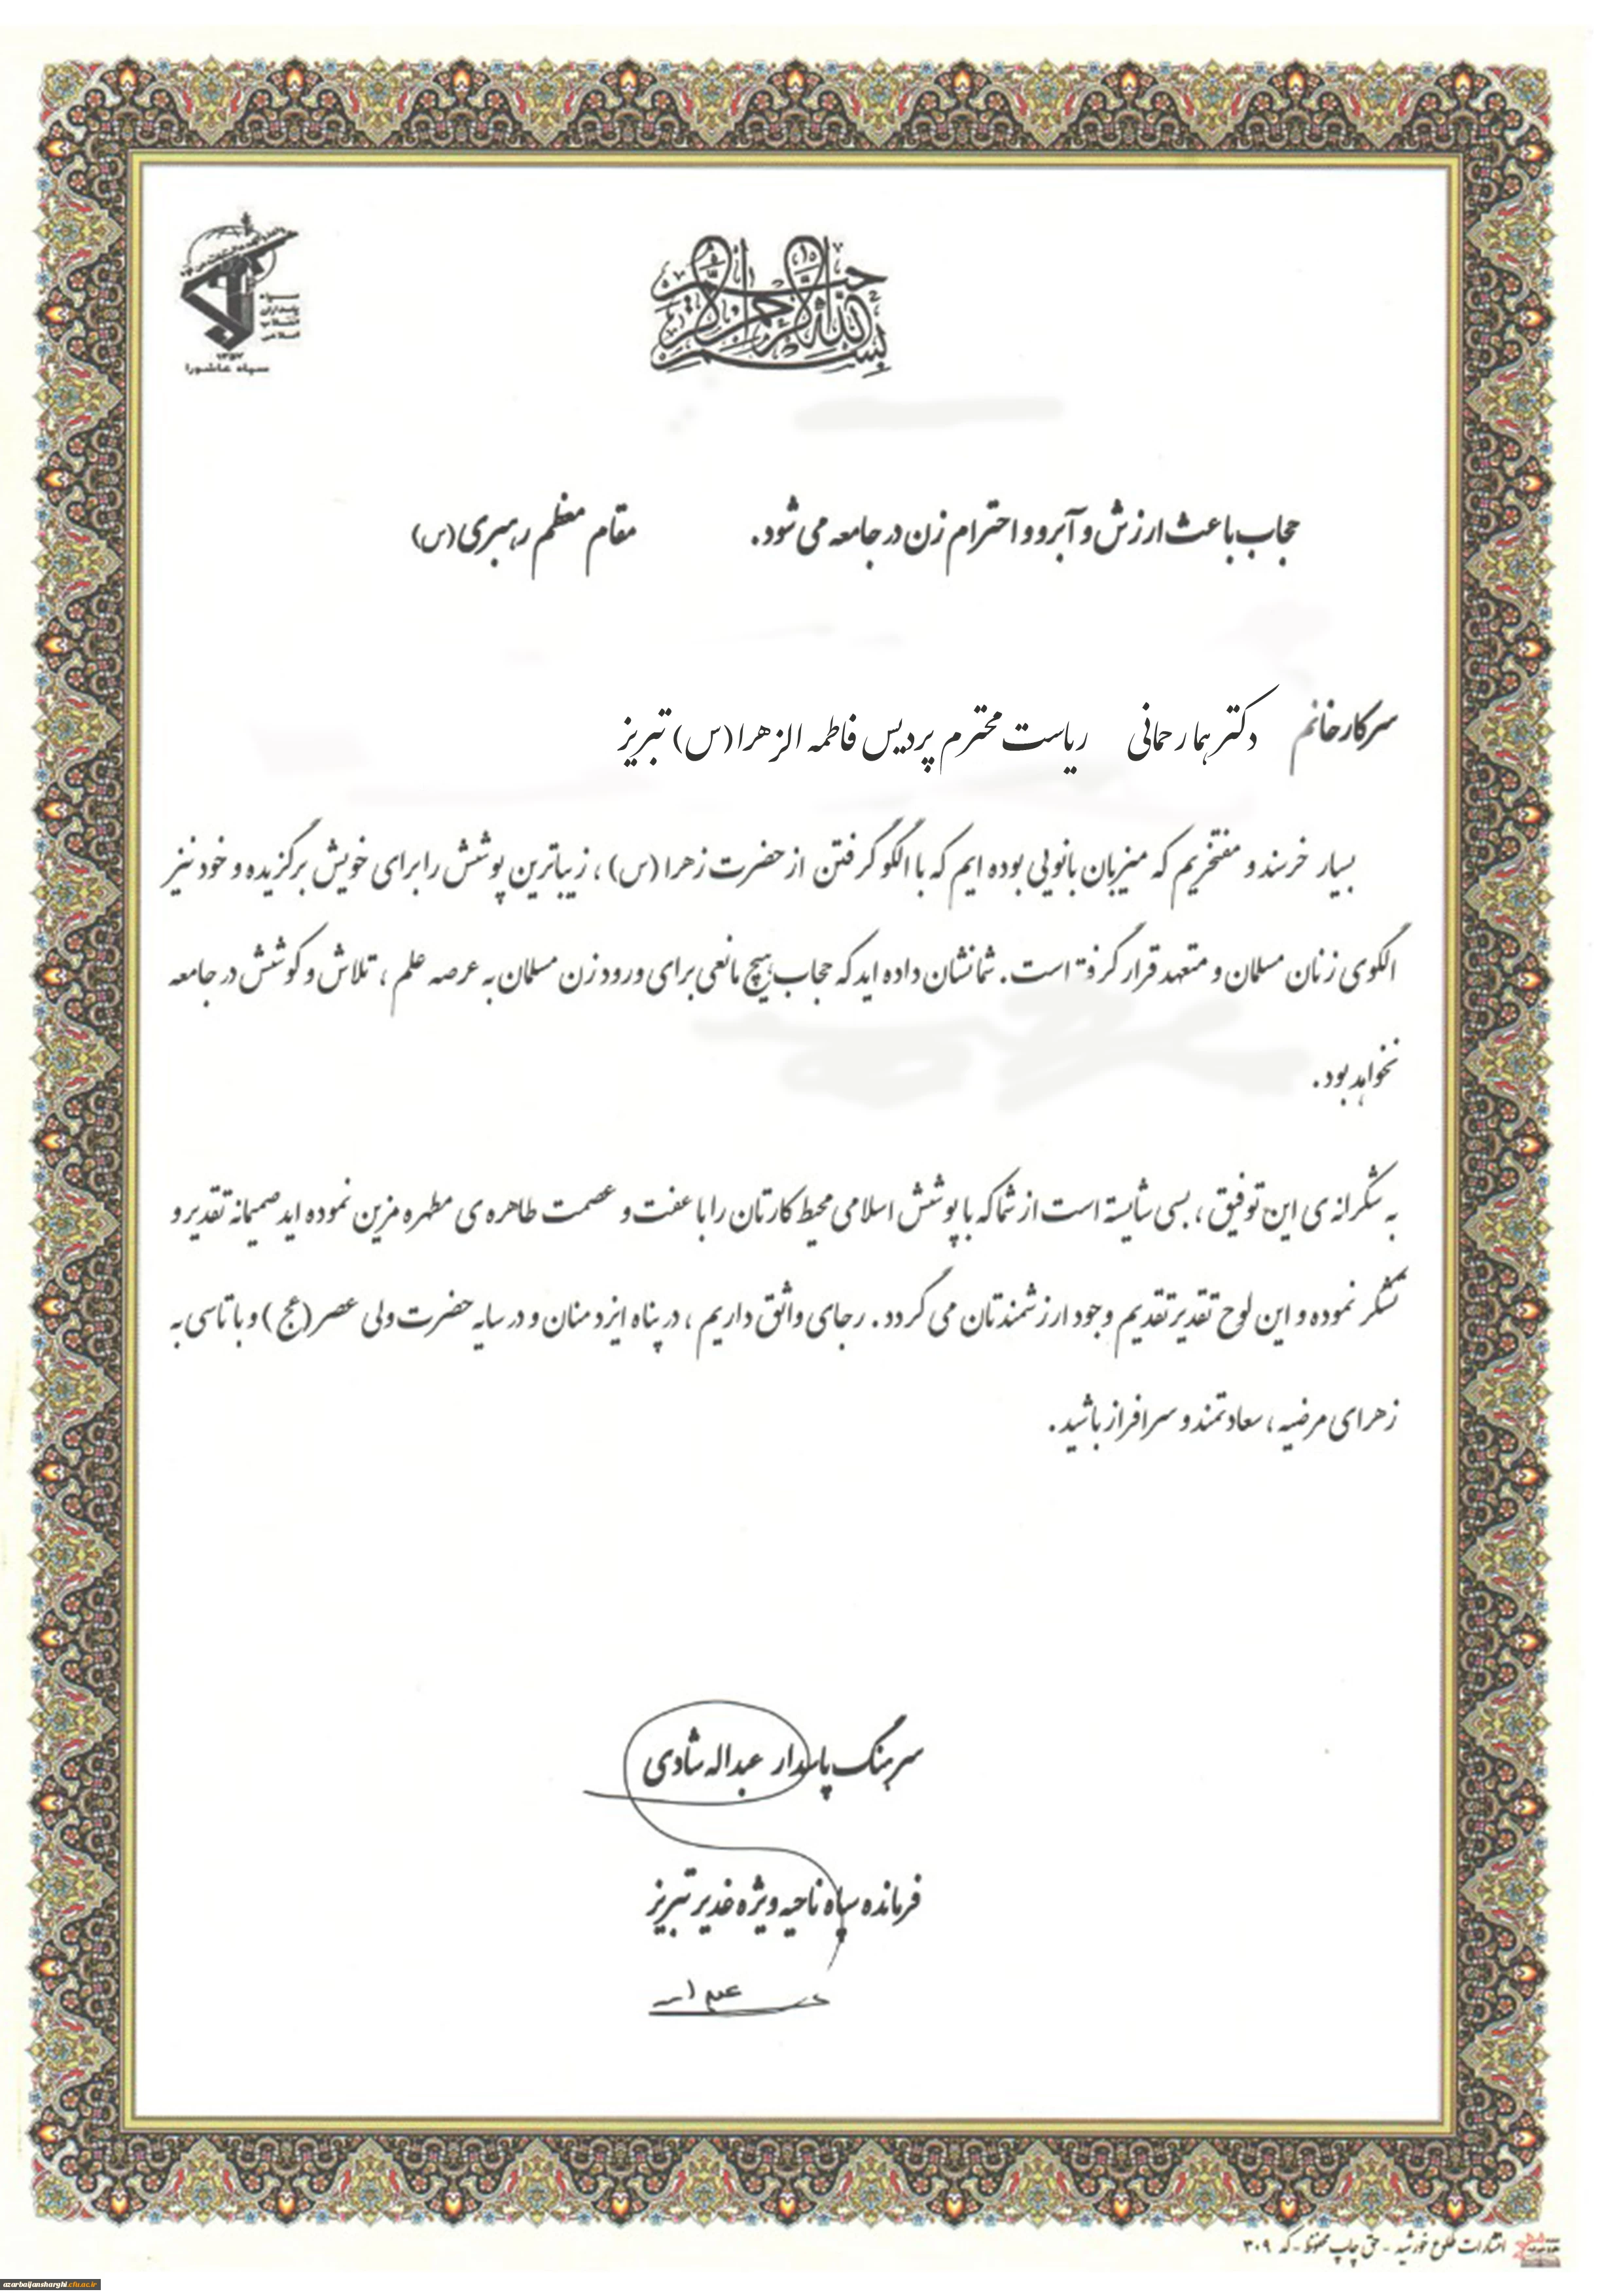 بسم الله الرحمن الرحیم
سپاه
پاسداران
انقلاب
اسلامی
۱۳۵۷
سپاه عاشورا
حجاب باعث ارزش و آبرو و احترام زن در جامعه می شود. مقام معظم رهبری (س)
سرکار خانم دکتر هما رحمانی ریاست محترم پردیس فاطمه الزهرا (س) تبریز
بسیار خرسند و مفتخریم که میزبان بانویی بوده ایم که با الگو گرفتن از حضرت زهرا (س) ، زیباترین پوشش را برای خویش برگزیده و خود نیز
الگوی زنان مسلمان و متعهد قرار گرفته است. شما نشان داده اید که حجاب هیچ مانعی برای ورود زن مسلمان به عرصه علم ، تلاش و کوشش در جامعه
نخواهد بود.
به شکرانه ی این توفیق ، بسی شایسته است از شما که با پوشش اسلامی محیط کارتان را با عفت و عصمت طاهره ی مطهره مزین نموده اید صمیمانه تقدیر و
تشکر نموده و این لوح تقدیر تقدیم وجود ارزشمندتان می گردد. رجای واثق داریم ، در پناه ایزد منان و در سایه حضرت ولی عصر (عج) و با تاسی به
زهرای مرضیه ، سعادتمند و سرافراز باشید.
سرهنگ پاسدار عبداله شادی
فرمانده سپاه ناحیه ویژه غدیر تبریز
انتشارات طلوع خورشید - حق چاپ محفوظ - کد ۳۰۹
azarbaijansharghi.cfu.ac.ir